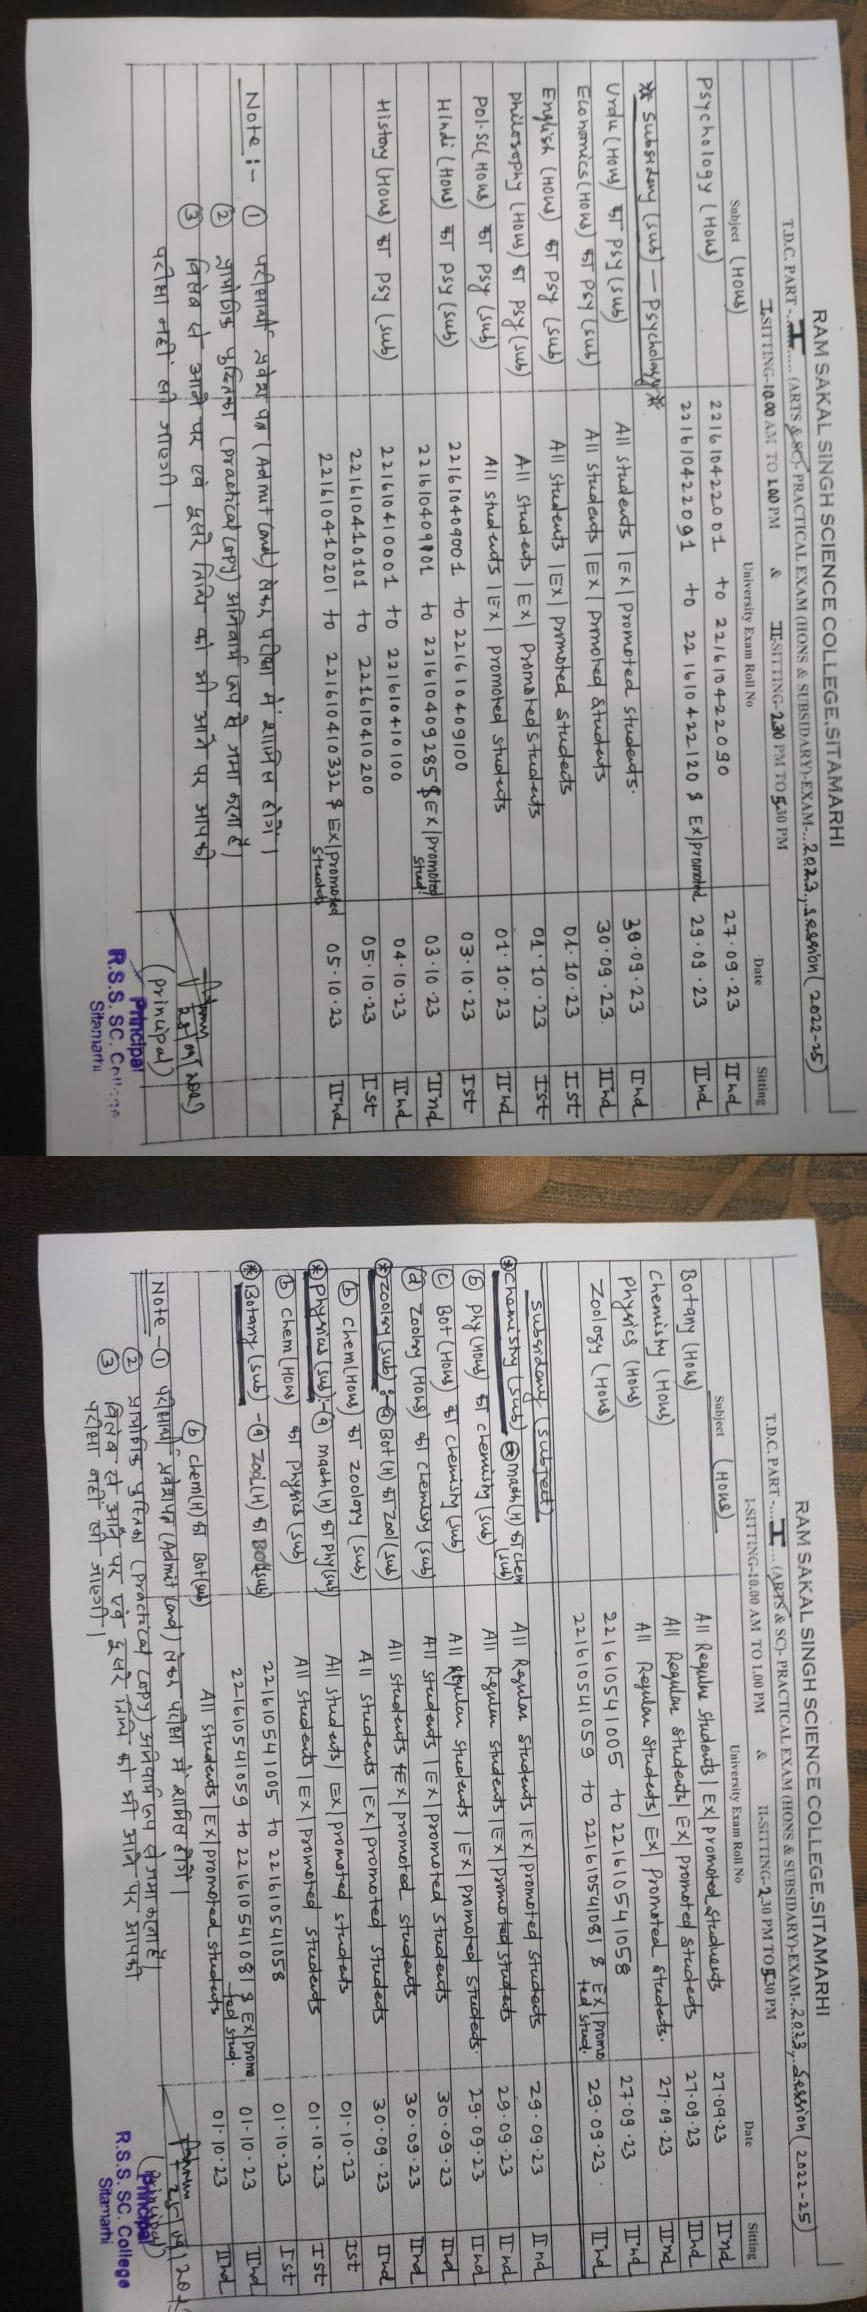 RAM SAKAL SINGH SCIENCE COLLEGE,SITAMARHI
T.D.C. PART -..I..... (ARTS & SC)- PRACTICAL EXAM (HONS & SUBSIDARY)-EXAM-..2023., Session (2022-25)
I-SITTING-10.00 AM TO 1.00 PM & II-SITTING-2.30 PM TO 5.30 PM
Subject (Hons) University Exam Roll No Date Sitting
Psychology (Hons) 221610422001 to 221610422090 27.09.23 IInd
221610422091 to 221610422120 & Ex/promoted 29.09.23 IInd
** Subsidary (sub) - Psychology **
Urdu (Hons) का Psy (sub) All students /Ex/ promoted students. 30.09.23 IInd
Economics (Hons) का Psy (sub) All students /Ex/ promoted students 30.09.23. IInd
English (Hons) का Psy (sub) All students /Ex/ promoted students 01.10.23 Ist
Philosophy (Hons) का Psy (sub) All students /Ex/ promoted students 01.10.23 Ist
Pol.Sc (Hons) का Psy (sub) All students /Ex/ promoted students 01.10.23 IInd
Hindi (Hons) का Psy (sub) 221610409001 to 221610409100 03.10.23 Ist
221610409101 to 221610409285 & Ex/Promoted Stud. 03.10.23 IInd
History (Hons) का Psy (sub) 221610410001 to 221610410100 04.10.23 IInd
221610410101 to 221610410200 05.10.23 Ist
221610410201 to 221610410332 & Ex/promoted Students 05.10.23 IInd
Note :- ① परीक्षार्थी प्रवेश पत्र (Admit Card) लेकर परीक्षा में शामिल होंगे।
② प्रायोगिक पुस्तिका (practical copy) अनिवार्य रूप से जमा करना है।
③ विलंब से आने पर एवं दूसरे तिथि को भी आने पर आपकी
परीक्षा नहीं ली जाएगी।
(principal)
Principal
R.S.S. SC. College
Sitamarhi
RAM SAKAL SINGH SCIENCE COLLEGE,SITAMARHI
T.D.C. PART -....I.... (ARTS & SC)- PRACTICAL EXAM (HONS & SUBSIDARY)-EXAM-..2023., Session (2022-25)
I-SITTING-10.00 AM TO 1.00 PM & II-SITTING-2.30 PM TO 5.30 PM
Subject (Hons) University Exam Roll No Date Sitting
Botany (Hons) All Regular students / Ex/ promoted students 27.09.23 IInd
Chemistry (Hons) All Regular students / Ex/ promoted students 27.09.23 IInd
Physics (Hons) All Regular students/ Ex/ Promoted students. 27.09.23 IInd
Zoology (Hons) 221610541005 to 221610541058 27.09.23 IInd
221610541059 to 221610541081 & Ex/promoted stud. 29.09.23. IInd
Subsidary (subject)
* Chemistry (sub) ⓐ math (H) का chem (sub) All Regular students /Ex/promoted students 29.09.23 IInd
ⓑ Phy (Hons) का chemistry (sub) All Regular students /Ex/ promoted students 29.09.23 IInd
ⓒ Bot (Hons) का chemistry (sub) All Regular students /Ex/promoted students. 29.09.23 IInd
ⓓ Zoology (Hons) का chemistry (sub) All students /Ex/ promoted students 30.09.23 IInd
* Zoology (sub) :- ⓐ Bot (H) का Zool (sub) All students /Ex/ promoted students 30.09.23 IInd
ⓑ chem (Hons) का zoology (sub) All students /Ex/ promoted students 30.09.23 IInd
* Physics (sub) :- ⓐ math (H) का phy (sub) All students/ Ex/ promoted students 01.10.23 Ist
ⓑ Chem (Hons) का Physics (sub) All students /Ex/ promoted students 01.10.23 Ist
* Botany (sub) - ⓐ Zool (H) का Bot (sub) 221610541005 to 221610541058 01.10.23 Ist
221610541059 to 221610541081 & Ex/promoted stud. 01.10.23 IInd
ⓑ Chem (H) का Bot (sub) All students /Ex/ promoted students 01.10.23 IInd
Note - ① परीक्षार्थी प्रवेशपत्र (Admit Card) लेकर परीक्षा में शामिल होंगे।
② प्रायोगिक पुस्तिका (practical copy) अनिवार्य रूप से जमा करना है।
③ विलंब से आने पर एवं दूसरे तिथि को भी आने पर आपकी
परीक्षा नहीं ली जाएगी।
(principal)
Principal
R.S.S. SC. College
Sitamarhi